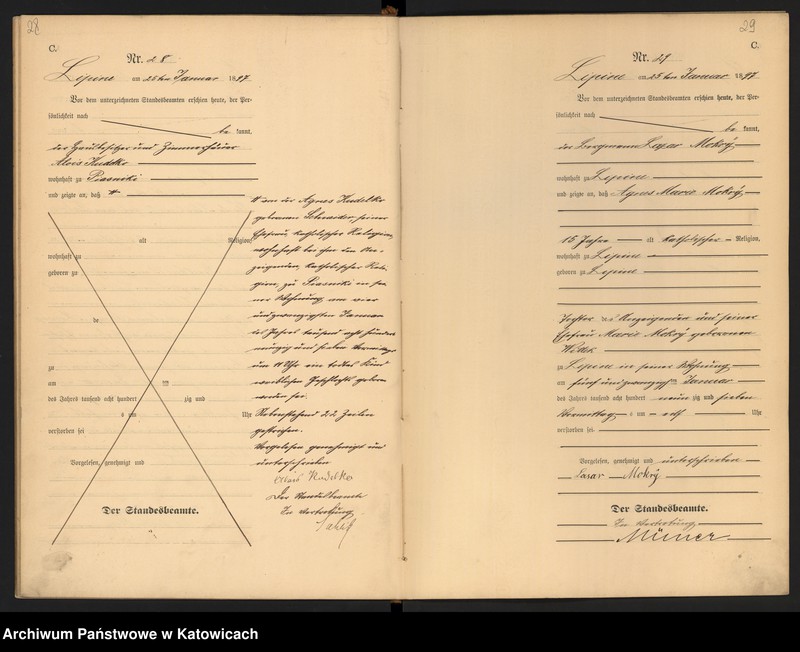 28
C.
Nr. 28
Lipine am 25ten Januar 1897
Vor dem unterzeichneten Standesbeamten erschien heute, der Per-
sönlichkeit nach
be kannt,
der Häusler und
Alois Kudelko
wohnhaft zu Piasniki
und zeigte an, daß
alt Religion,
wohnhaft zu
geboren zu
de
zu
am ten
des Jahres tausend acht hundert zig und
um Uhr
verstorben sei
Vorgelesen, genehmigt und
Der Standesbeamte.
von der Agnes Kudelko
geborenen Schneider, seiner
Ehefrau, katholischer Religion,
wohnhaft bei ihm dem An-
zeigenden, katholischer Reli-
gion, zu Piasniki in sei-
ner Wohnung, am vier
und zwanzigsten Januar
des Jahres tausend acht hundert
neunzig und sieben Vormittags
um 11 Uhr ein todtes Kind
weiblichen Geschlechts geboren
worden sei.
Nebenstehend 22 Zeilen
gestrichen.
Vorgelesen genehmigt und
unterschrieben
Alois Kudelko
Der Standesbeamte
In Vertretung
29
C.
Nr. 29
Lipine am 25ten Januar 1897
Vor dem unterzeichneten Standesbeamten erschien heute, der Per-
sönlichkeit nach
be kannt,
der Bergmann Lazar Mokrÿ
wohnhaft zu Lipine
und zeigte an, daß Agnes Marie Mokrÿ,
15 Jahre alt katholischer Religion,
wohnhaft zu Lipine
geboren zu Lipine
Tochter des Anzeigenden und seiner
Ehefrau Marie Mokrÿ geborenen
zu Lipine in seiner Wohnung
am fünf und zwanzigsten Januar
des Jahres tausend acht hundert neun zig und sieben
Vormittags um elf Uhr
verstorben sei
Vorgelesen, genehmigt und unterschrieben
Lasar Mokrÿ
Der Standesbeamte.
In Vertretung
Archiwum Państwowe w Katowicach